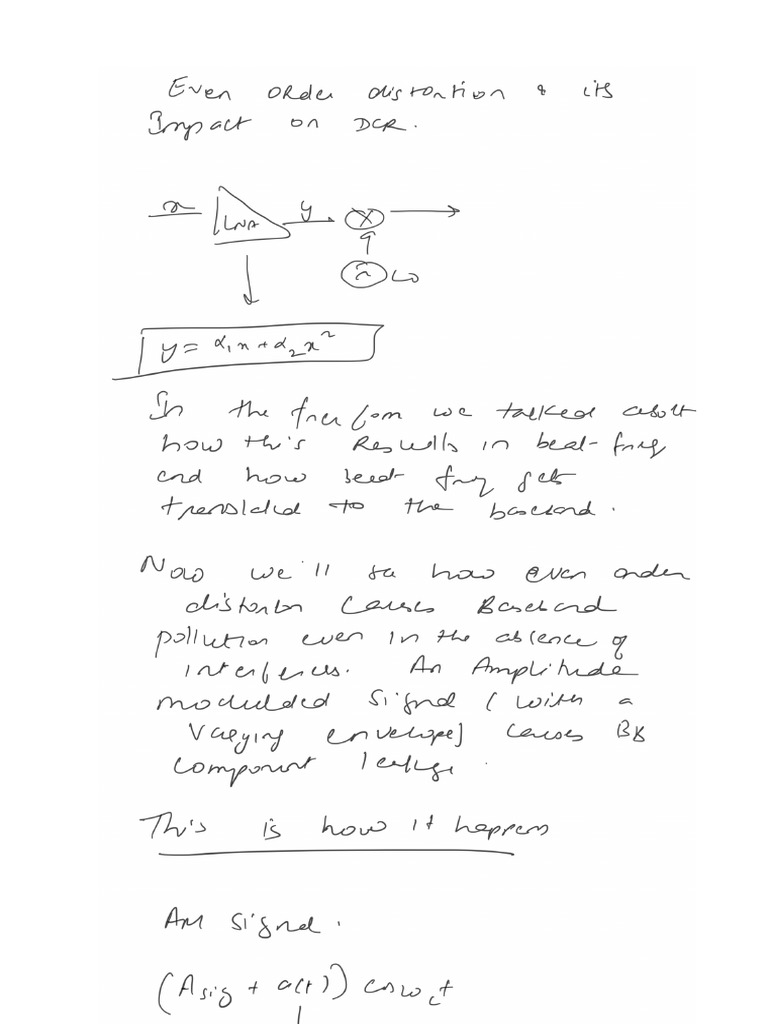 Even order distortion & its
Impact on DCR.
x LNA y LO
y = α₁x + α₂x²
In the prev form we talked about
how this Results in beat-freq
and how beat freq gets
translated to the baseband.
Now we'll see how even order
distortion causes Baseband
pollution even in the absence of
interferers. An Amplitude
modulated signal (with a
varying envelope) causes BB
component leakage.
This is how it happens
AM signal.
(A_sig + a(t)) cos ω_c t